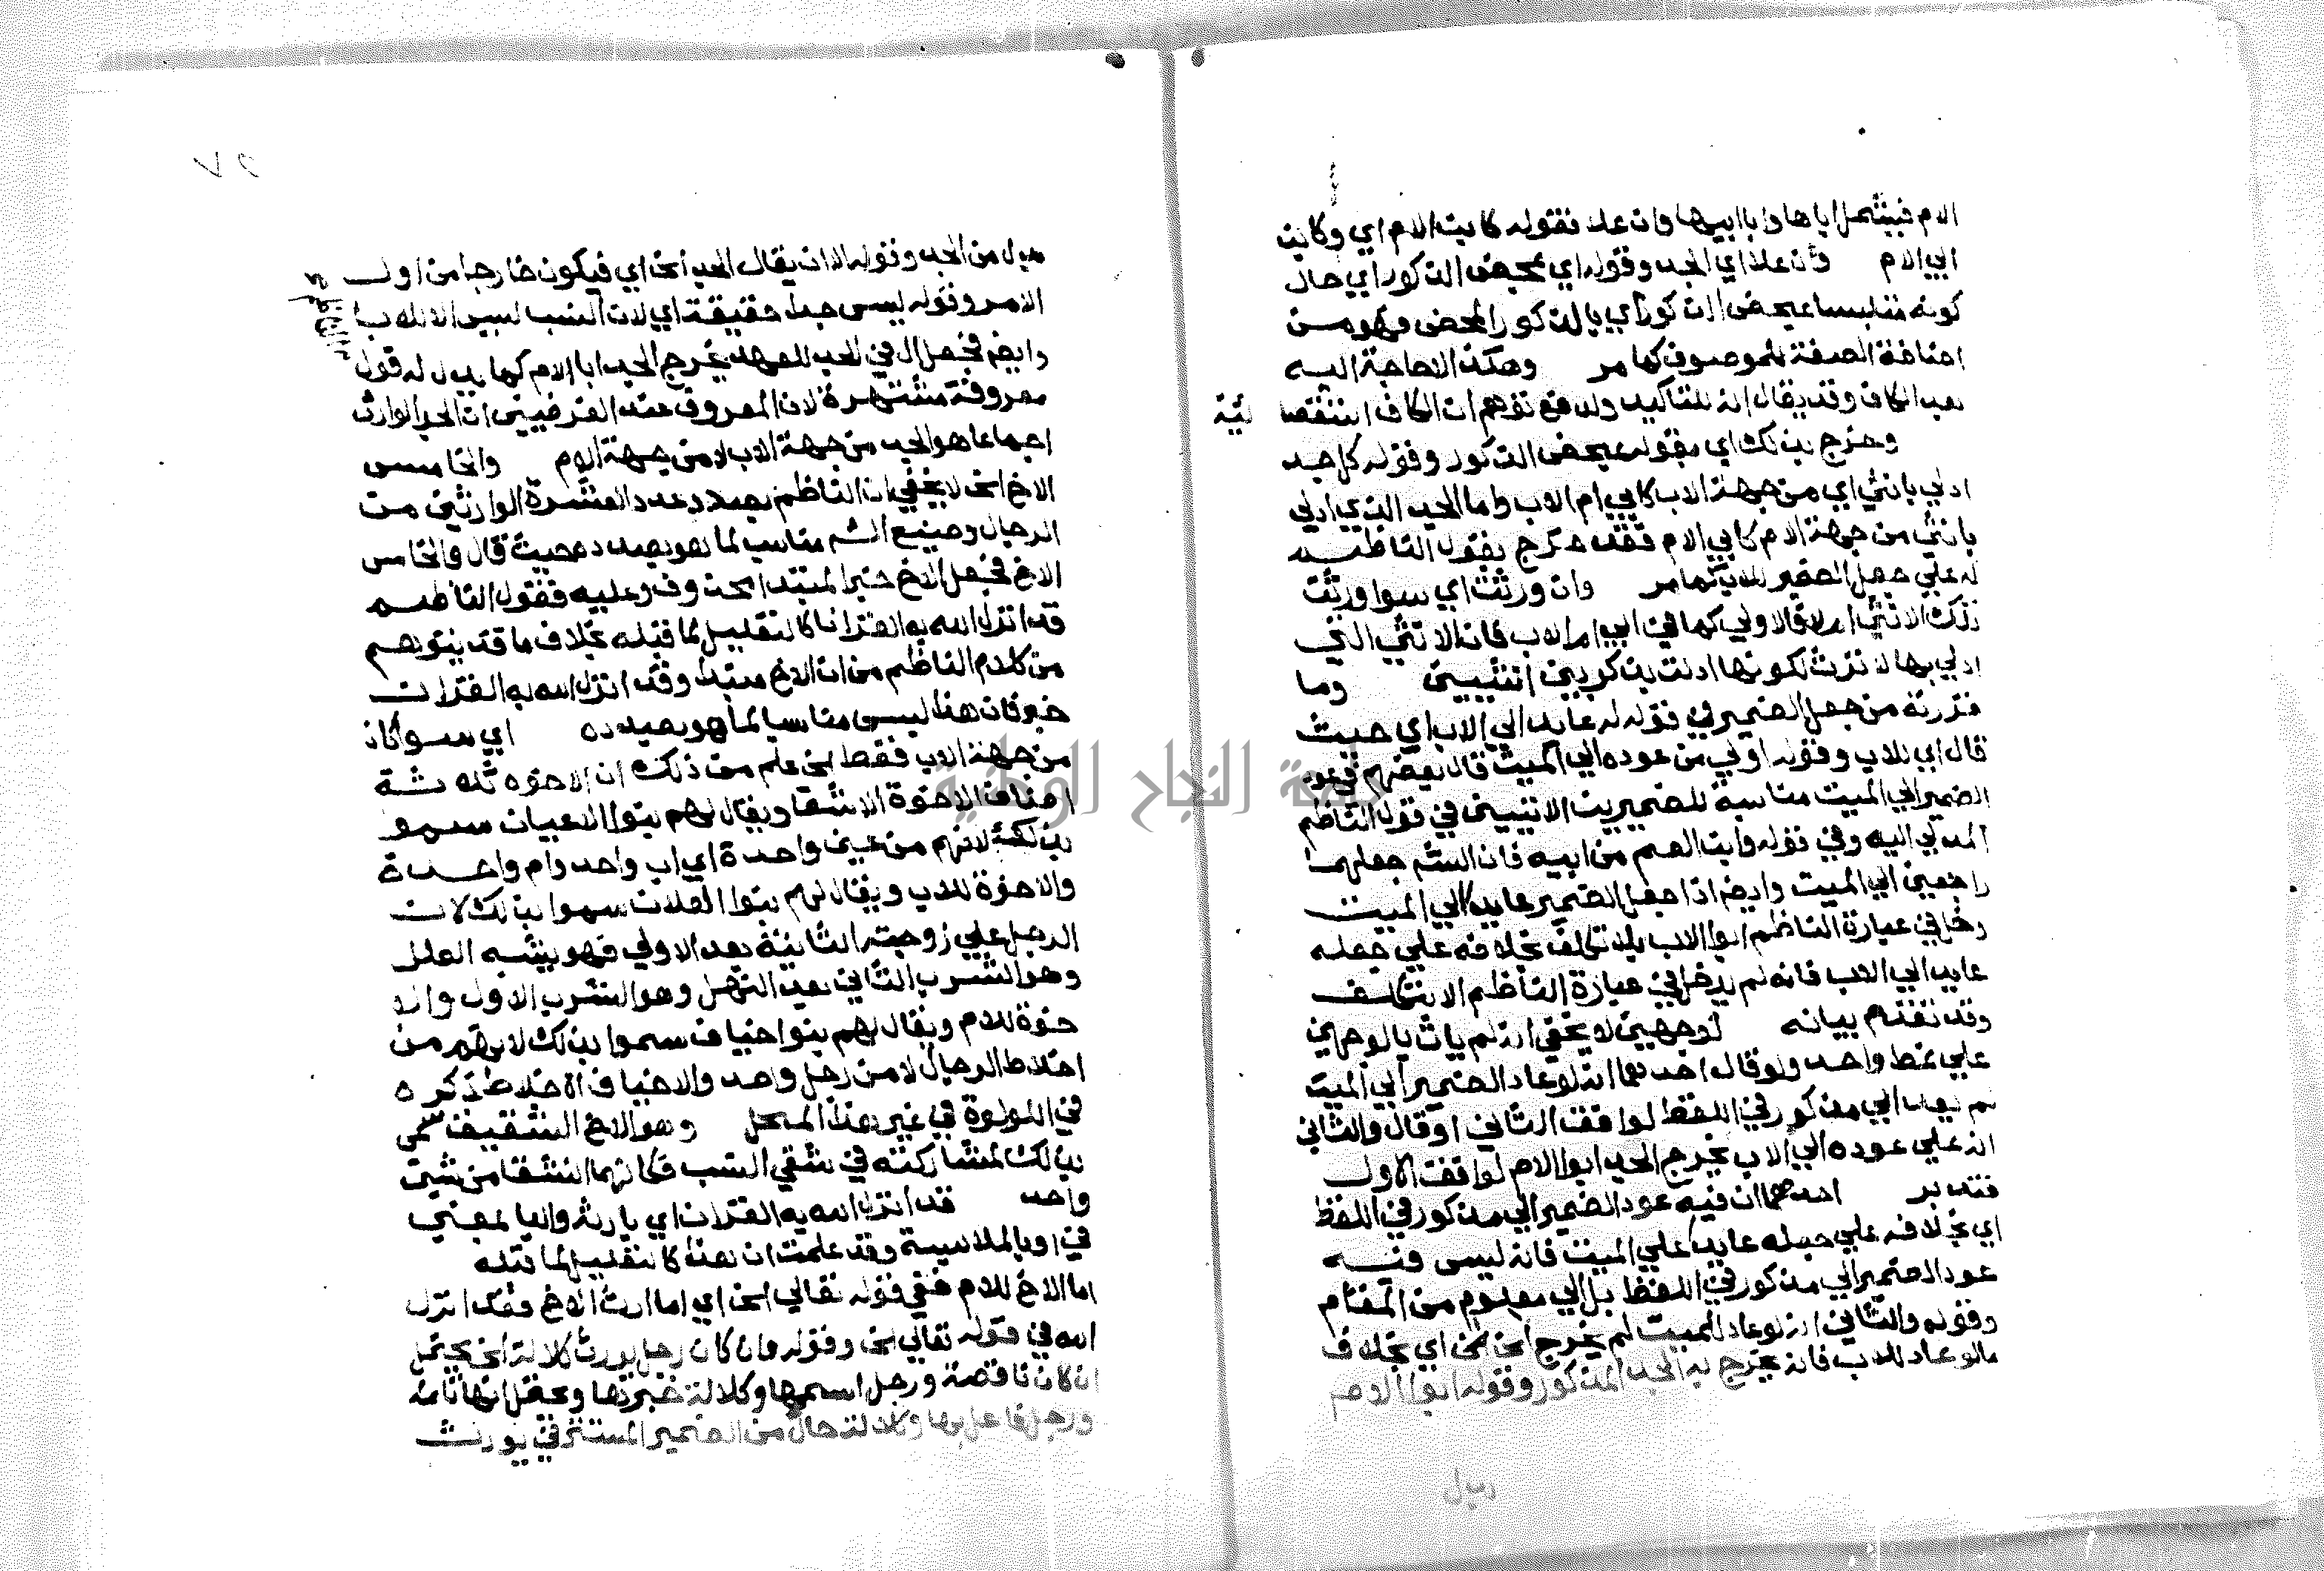 الام فيشمل اباها وابا ابيها وان علا فقوله كابن الام اي وكابن
ابي الام وان علا اي الجد وقوله اي بمحض الذكور اي حال
كونه متلبسا بمحض الذكور اي بالذكور المحض فهو من
اضافة الصفة للموصوف كما مر وهكذا لا حاجة اليه
بعد الكاف وقد يقال انه للتاكيد ولدفع توهم ان الكاف استقصا ئية
وخرج بذلك اي بقوله بمحض الذكور وقوله كل جد
ادلي بانثي اي من جهة الاب كابي ام الاب واما الجد الذي ادلي
بانثي من جهة الام كابي الام فقد خرج بقول الناظم
له علي جعل الضمير للاب كما مر وان ورثت اي سوا ورثت
تلك الانثي ام لا فالاولي كما في ابي ام الاب فان الانثي التي
ادلي بها لا ترث لكونها ادلت بذكر بين انثيين وما
قررته من جعل الضمير في قوله له عايد الي الاب اي حيث
قال اي للاب وقوله اولي من عوده الي الميت قال بعضهم في عود
الضمير الي الميت مناسبة للضميرين الاتيين في قول الناظم
المدلي اليه وفي قوله وابن العم من ابيه فان الش جعلهما
راجعين الي الميت وايضا اذا جعل الضمير عايدا الي الميت
دخل في عبارة الناظم ابو الاب بلا تكلف بخلافه علي جعله
عايد الي الاب فانه لم يدخل في عبارة الناظم الا بتكلف
وقد تقدم بيانه لوجهين لا يخفي انه لم يات بالوجهين
علي نمط واحد ولو قال احدهما انه لو عاد الضمير الي الميت
لم يعد الي مذكور في اللفظ لوافق الثاني او قال والثاني
انه علي عوده الي الاب يخرج الجد ابو الام لوافق الاول
فتدبر احدهما ان فيه عود الضمير الي مذكور في اللفظ
اي بخلافه علي جعله عايدا علي الميت فانه ليس فيه
عود الضمير الي مذكور في اللفظ بل الي معلوم من المقام
وقوله والثاني انه لو عاد للميت لم يخرج الخ الخ اي بخلاف
ما لو عاد للاب فانه يخرج به الجد المذكور وقوله ابو الام
بدل
٧٢
بدل من الجد وقوله الا ان يقال الجد الخ اي فيكون خارجا من اول
الامر وقوله ليس جدا حقيقة اي لان النسب ليس الا للاب
وايضا فجعل ال في الجد للعهد يخرج الجد ابا الام كما يدل له قول الناظم
معروفة مشتهرة لان المعروف عند الفرضيين ان الجد الوارث
اجماعا هو الجد من جهة الاب لا من جهة الام والخامس
الاخ الخ لا يخفي ان الناظم بصدد عدد العشرة الوارثين من
الرجال وصنيع الش مناسب لما هو بصدده حيث قال والخامس
الاخ فجعل الاخ خبرا لمبتدا محذوف وعليه فقول الناظم
قد انزل الله به القرانا كالتعليل لما قبله بخلاف ما قد يتوهم
من كلام الناظم من ان الاخ مبتدا وقد انزل الله به القران
خبر فان هذا ليس مناسبا لما هو بصدده اي سوا كان
من جهة الاب فقط الخ علم من ذلك ان الاخوه ثلاثة
اصناف الاخوة الاشقا ويقال لهم بنوا الاعيان سموا
بذلك لانهم من عين واحدة اي اب واحد وام واحدة
والاخوة للاب ويقال لهم بنوا العلات سموا بذلك لان
الرجل علي زوجته الثانية بعد الاولي فهو يشبه العلل
وهو الشرب الثاني بعد النهل وهو الشرب الاول والا
خوة للام ويقال لهم بنوا اخياف سموا بذلك لانهم من
اختلاط الرجال لا من رجل واحد والاخياف الاختلاط ذكره
في اللولوة في غير هذا المحل وهو الاخ الشقيق سمي
بذلك لمشاركته في شقي النسب فكانهما انشقا من شي
واحد قد انزل الله به القران اي بارثه والبا بمعني
في او بالملابسة وقد علمت ان هذا كالتعليل لما قبله
اما الاخ للام ففي قوله تعالي الخ اي اما ارث الاخ فقد انزل
الله في قوله تعالي الخ وقوله وان كان رجل يورث كلالة الخ يحتمل
ان كان ناقصة ورجل اسمها وكلالة خبرها ويحتمل انها تامة
ورجل فاعل بها وكلالة حال من الضمير المستتر في يورث
جامعة النجاح الوطنية